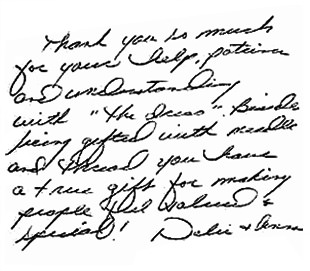 Thank you so much
for your help, patience
and understanding
with "the dress". Beside
being gifted with needle
and thread you have
a true gift for making
people feel valued &
special! Debi + Anna